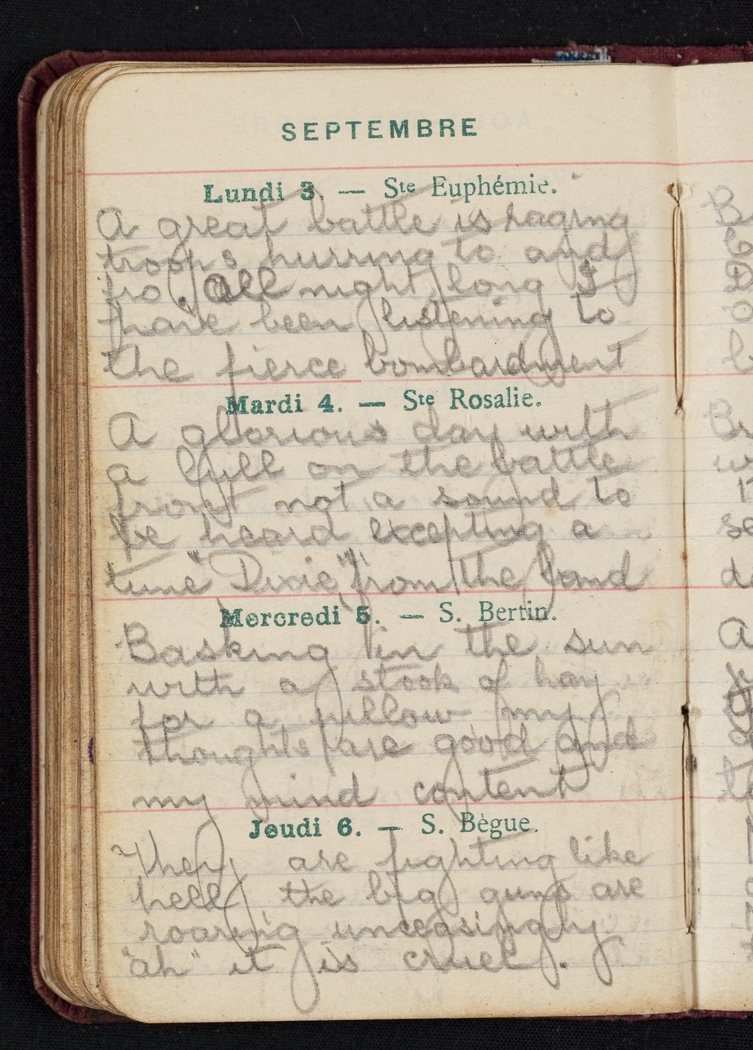 SEPTEMBRE
Lundi 3. — Ste Euphémie.
A great battle is raging
troops hurring to and
fro. All night long I
have been listening to
the fierce bombardment
Mardi 4. — Ste Rosalie.
A glorious day with
a lull on the battle
front not a sound to
be heard excepting a
tune "Dixie" from the band
Mercredi 5. — S. Bertin.
Basking in the sun
with a stook of hay
for a pillow my
thoughts are good and
my mind content
Jeudi 6. — S. Bègue.
They are fighting like
hell the big guns are
roaring unceasingly
"ah" it is cruel.